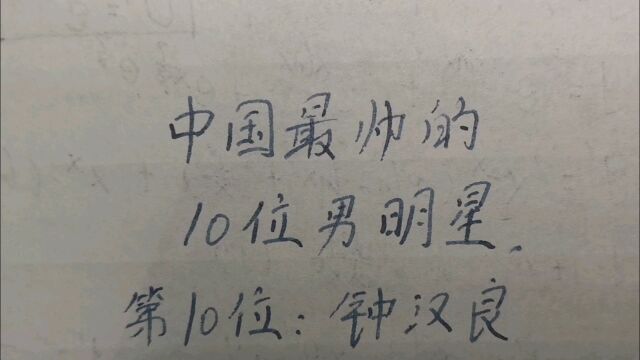 中国最帅的
10位男明星.
第10位：钟汉良